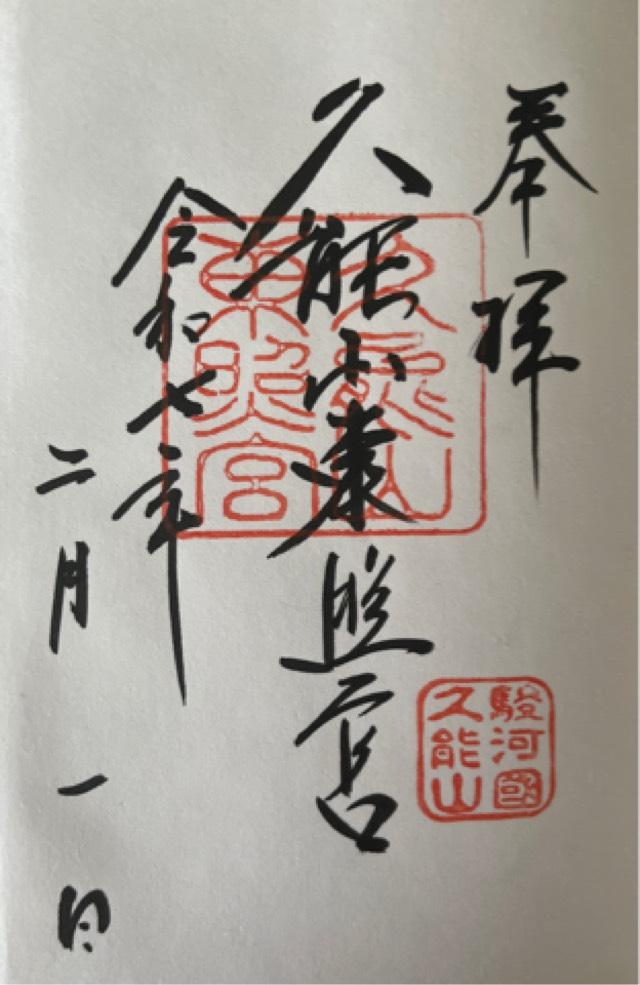 奉拝
久能山東照宮
令和七年
二月一日
久能山
東照宮
駿河國
久能山